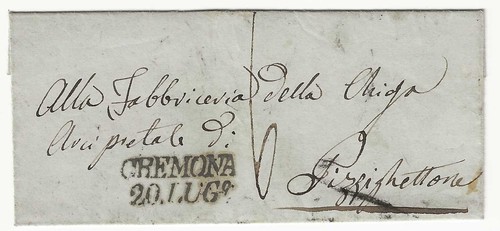 Alla Fabbriceria della Chiesa
Arcipretale di
CREMONA
20.LUGº
6
Pizzighettone